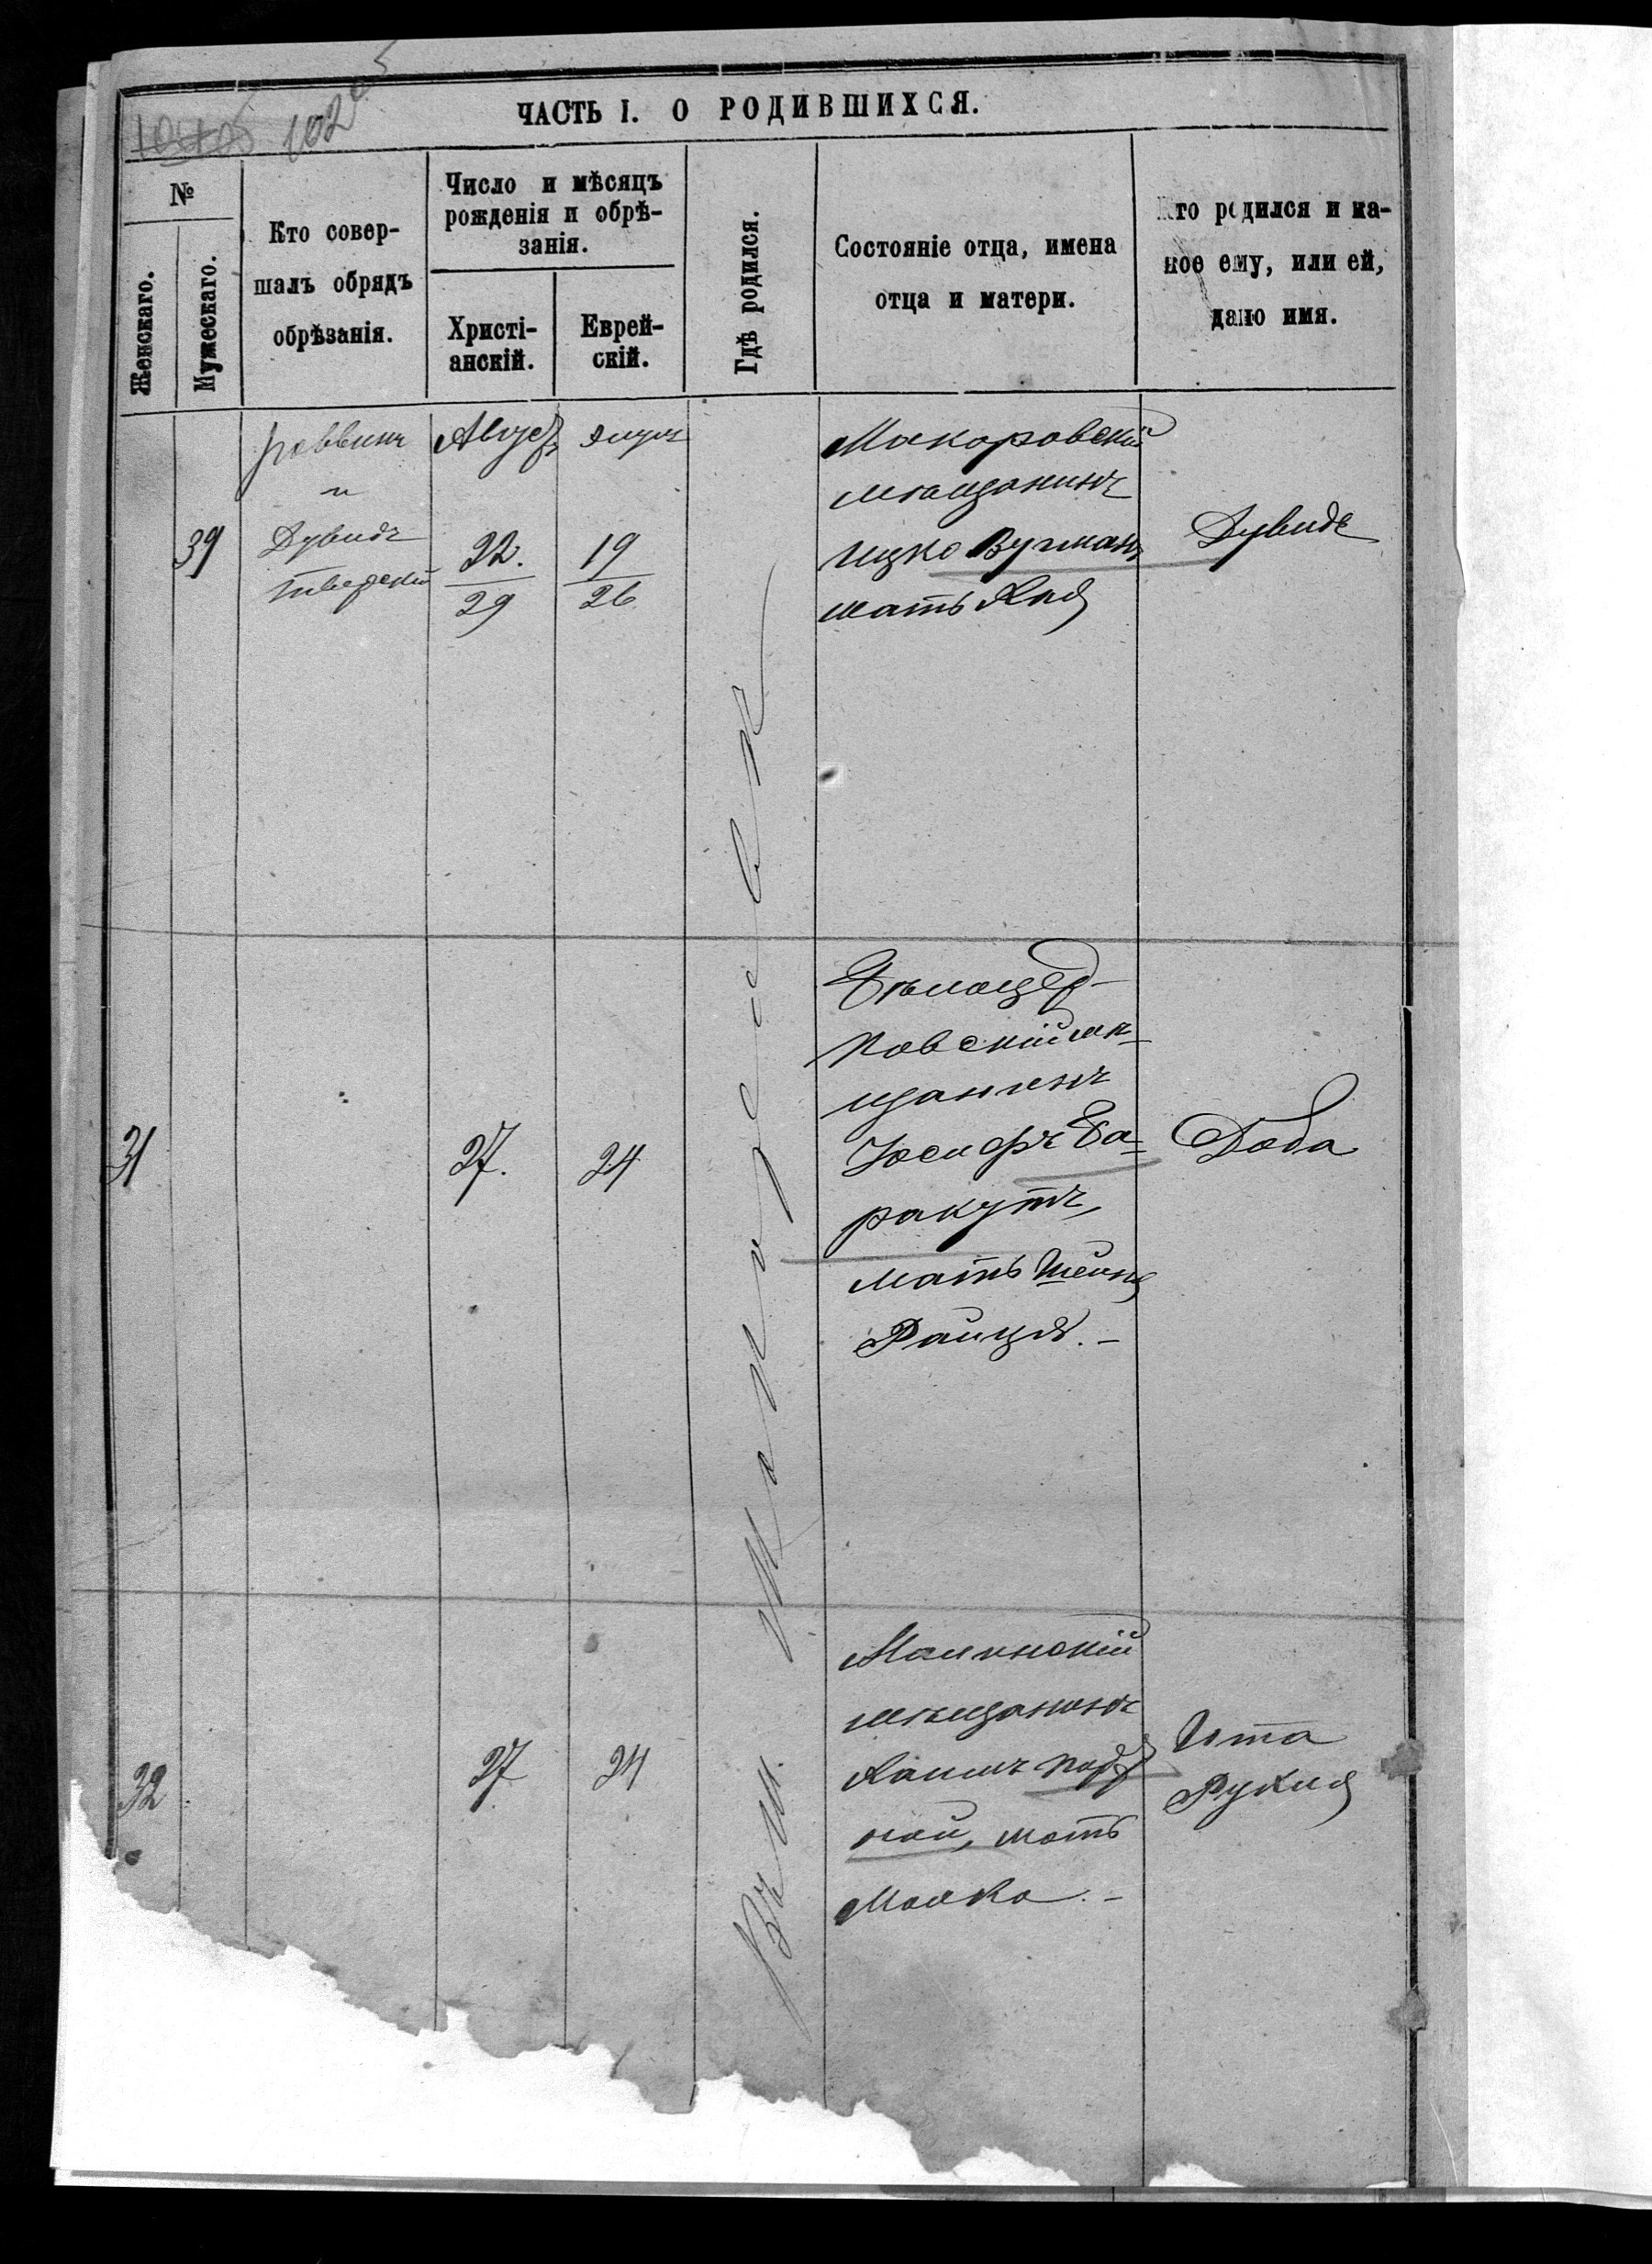 102
ЧАСТЬ I. О РОДИВШИХСЯ.
№
Женскаго.
Мужескаго.
Кто совер-
шалъ обрядъ
обрѣзанія.
Число и мѣсяцъ
рожденія и обрѣ-
занія.
Христі-
анскій.
Еврей-
скій.
Гдѣ родился.
Состояніе отца, имена
отца и матери.
Кто родился и ка-
кое ему, или ей,
дано имя.
39
раввинъ
и
Дувидъ
Тверскій
Август
22.
29
19
26
Макаровскій
мѣщанинъ
Ицко Вугманъ
мать Хая
Дувидъ
Въ м.
31
27.
24
Бѣлоцер-
ковскій мѣ-
щанинъ
Іосифъ Ба-
ракутъ,
мать Шейня
Райця. -
Доба
32
27
24
Малинскій
мѣщанинъ
Хаимъ
мать
Малка. -
Ита
Рухля